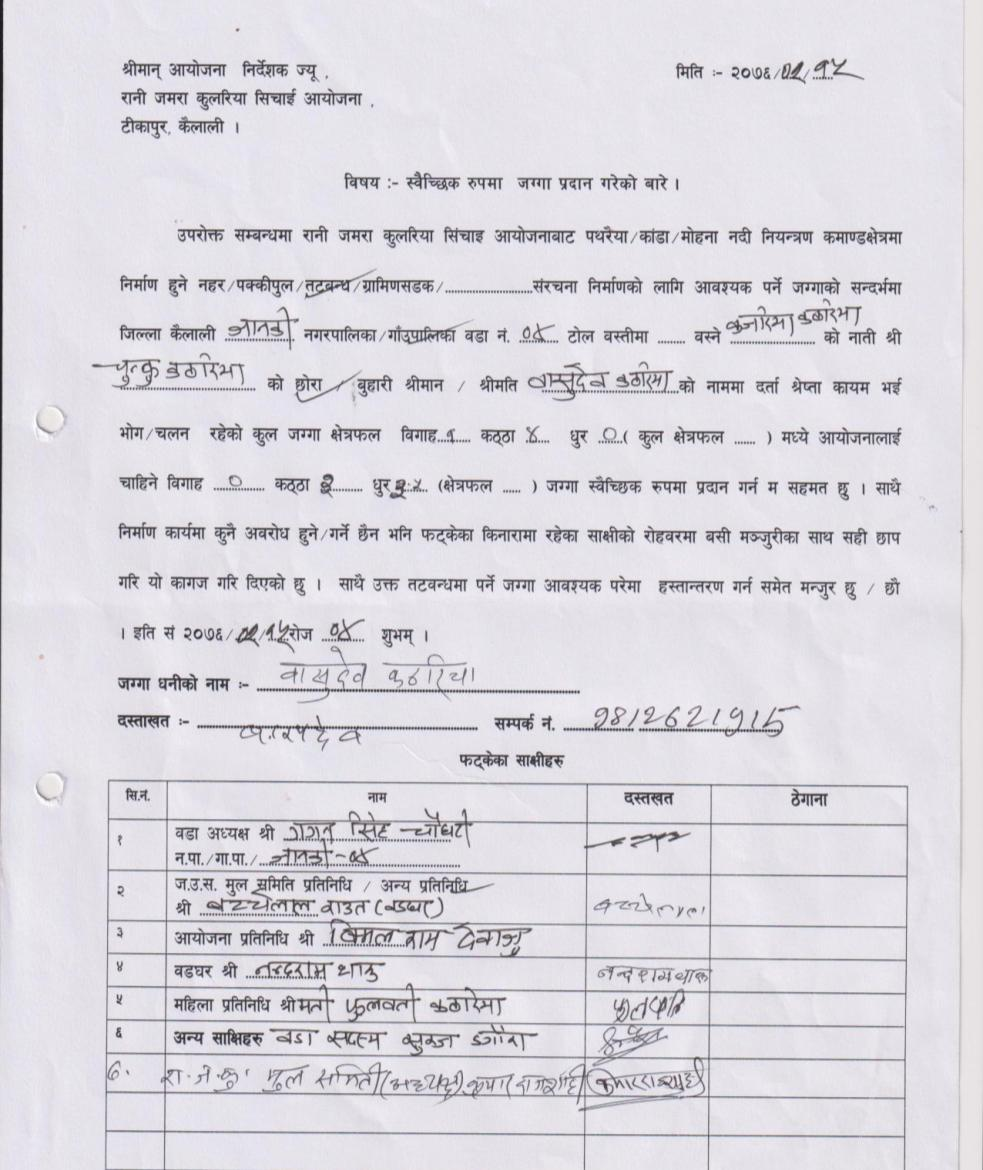 श्रीमान् आयोजना निर्देशक ज्यू ,
मिति :- २०७६/०२/१५
रानी जमरा कुलरिया सिचाई आयोजना ,
टीकापुर, कैलाली ।
विषय :- स्वैच्छिक रुपमा जग्गा प्रदान गरेको बारे ।
उपरोक्त सम्बन्धमा रानी जमरा कुलरिया सिंचाइ आयोजनाबाट पथरैया/कांडा/मोहना नदी नियन्त्रण कमाण्डक्षेत्रमा
निर्माण हुने नहर/पक्कीपुल/तटबन्ध/ग्रामिणसडक/......................संरचना निर्माणको लागि आवश्यक पर्ने जग्गाको सन्दर्भमा
जिल्ला कैलाली जानकी नगरपालिका/गाँउपालिका वडा नं. ०४ टोल वस्तीमा ....... वस्ने कठरिया को नाती श्री
कठरिया को छोरा / बुहारी श्रीमान / श्रीमति वासुदेव कठरिया को नाममा दर्ता श्रेष्ता कायम भई
भोग/चलन रहेको कुल जग्गा क्षेत्रफल विगाह..१.... कठ्ठा ४... धुर ..०..( कुल क्षेत्रफल ...... ) मध्ये आयोजनालाई
चाहिने विगाह ...०... कठ्ठा २...... धुर (क्षेत्रफल ..... ) जग्गा स्वैच्छिक रुपमा प्रदान गर्न म सहमत छु । साथै
निर्माण कार्यमा कुनै अवरोध हुने/गर्ने छैन भनि फट्केका किनारामा रहेका साक्षीको रोहवरमा बसी मञ्जुरीका साथ सही छाप
गरि यो कागज गरि दिएको छु । साथै उक्त तटवन्धमा पर्ने जग्गा आवश्यक परेमा हस्तान्तरण गर्न समेत मन्जुर छु / छौ
। इति सं २०७६/०२/१५ रोज ..०४.. शुभम् ।
जग्गा धनीको नाम :- वासुदेव कठरिया
दस्ताखत :- सम्पर्क नं. 9812621915
फट्केका साक्षीहरु
सि.नं. नाम दस्तखत ठेगाना
१ वडा अध्यक्ष श्री गगन सिंह चौधरी
न.पा./गा.पा./ जानकी-०४
२ ज.उ.स. मुल समिति प्रतिनिधि / अन्य प्रतिनिधि
श्री बच्चेलाल राउत (बडघर) बच्चेलाल
३ आयोजना प्रतिनिधि श्री विमल राम देवाजु
४ वडघर श्री नन्दराम थारु नन्दरामथारु
५ महिला प्रतिनिधि श्रीमती फुलवती कठरिया फुलवती
६ अन्य साक्षिहरु वडा सदस्य सुरज डगौरा
७. रा.ज.कु. मुल समिति (अध्यक्ष)